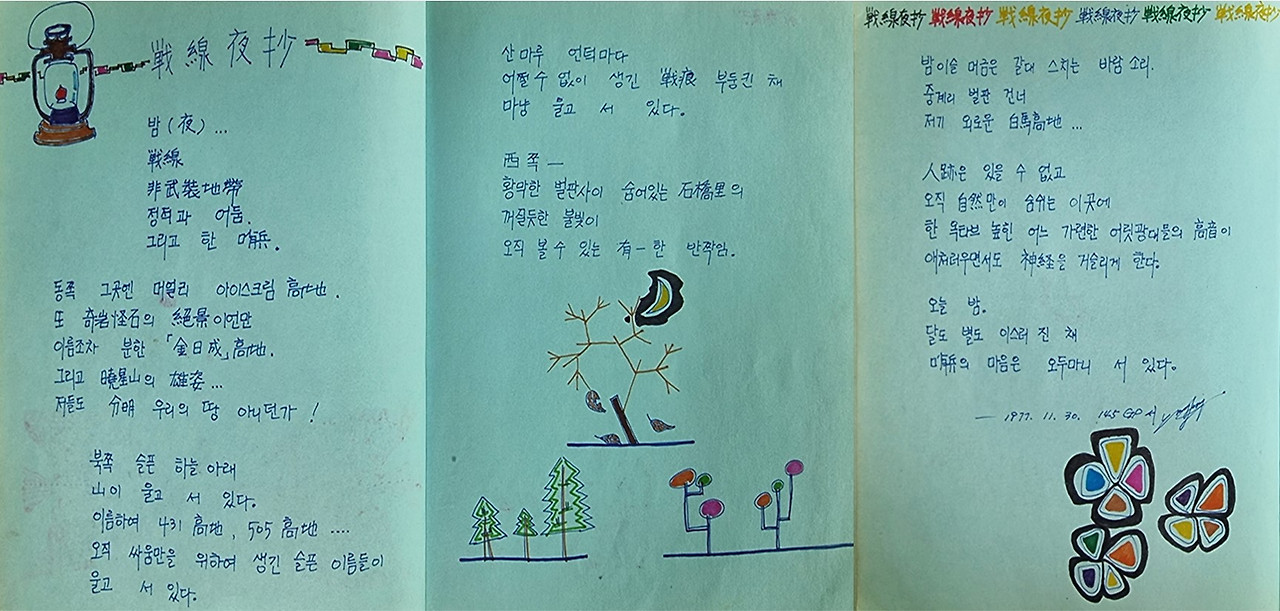 戦線夜抄
밤(夜)...
戦線
非武裝地帶
정적과 어둠.
그리고 한 哨兵.
동쪽 그곳엔 머얼리 아이스크림 高地.
또 奇岩怪石의 絕景이언만
이름조차 분한 「金日成」高地.
그리고 曉星山의 雄姿...
저들도 分明 우리의 땅 아니던가!
북쪽 슬픈 하늘 아래
山이 울고 서 있다.
이름하여 431 高地, 505 高地 ....
오직 싸움만을 위하여 생긴 슬픈 이름들이
울고 서 있다.
산마루 언덕마다
어쩔 수 없이 생긴 戦痕 부둥킨 채
마냥 울고 서 있다.
西쪽 —
황막한 벌판사이 숨어있는 石橋里의
꺼질듯한 불빛이
오직 볼 수 있는 有一한 반짝임.
戦線夜抄 戦線夜抄 戦線夜抄 戦線夜抄 戦線夜抄 戦線夜抄
밤이슬 머금은 갈대 스치는 바람 소리.
중계리 벌판 건너
저기 외로운 白馬高地 ...
人跡은 있을 수 없고
오직 自然만이 숨쉬는 이곳에
한 옥타브 높힌 어느 가련한 어릿광대들의 高音이
애처러우면서도 神経을 거슬리게 한다.
오늘 밤.
달도 별도 이스러 진 채
哨兵의 마음은 오두마니 서 있다.
— 1977. 11. 30. 145 GP 서